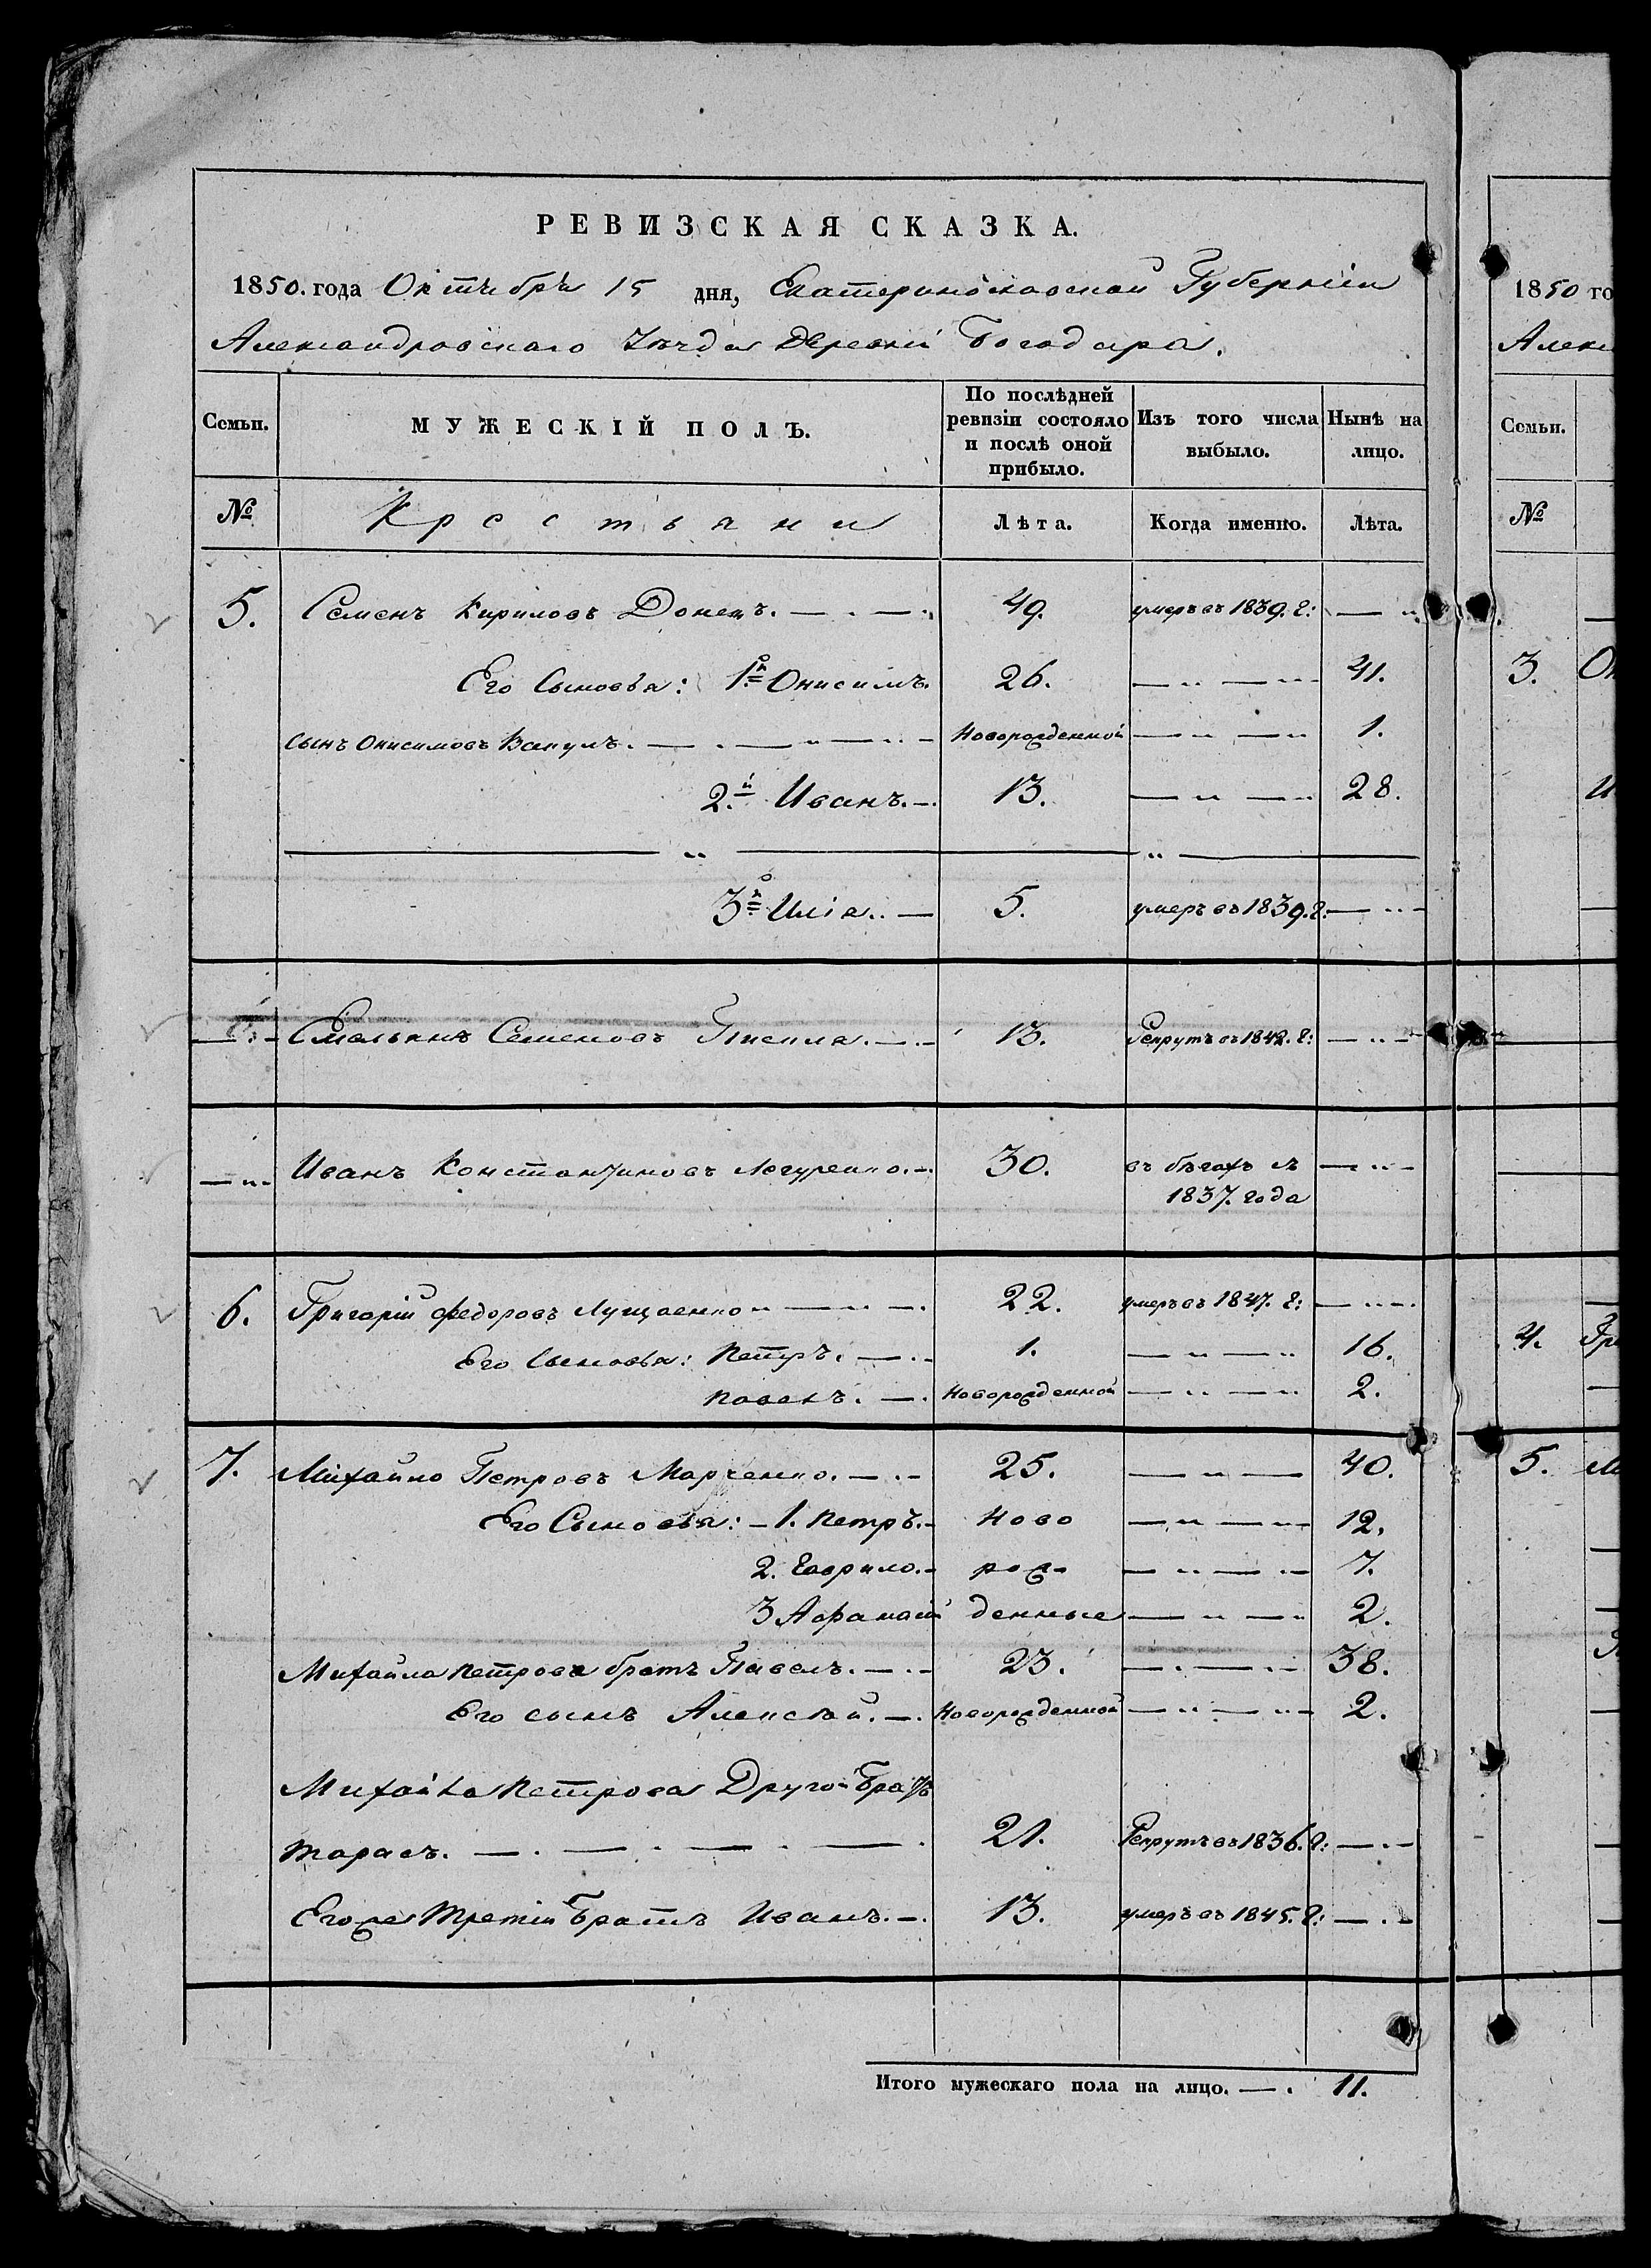 РЕВИЗСКАЯ СКАЗКА.
1850. года Октября 15 дня, Екатеринославской Губерніи
Александровскаго Уѣзда Деревни Богодара.
Семьи. МУЖЕСКІЙ ПОЛЪ. По послѣдней ревизіи состояло и послѣ оной прибыло. Изъ того числа выбыло. Нынѣ на лицо.
№ Крестьяни Лѣта. Когда именно. Лѣта.
5. Семенъ Кириловъ Донецъ. 49. умеръ въ 1839. г:
Его Сыновья: 1й Онисимъ. 26. 41.
сынъ Онисимовъ Вакулъ. Новорожденной 1.
2.й Иванъ. 13. 28.
3й Илія. 5. умеръ въ 1839. г:
Емельянъ Семеновъ 13. Рекрутъ въ 1842. г:
Иванъ Константиновъ 30. въ бѣгахъ съ
1837. года
6. Григорій Федоровъ Лущаенко 22. умеръ въ 1847. г:
Его Сыновья: Петръ. 1. 16.
Павелъ. Новорожденной 2.
7. Михайло Петровъ Марченко. 25. 40.
Его Сыновья: 1. Петръ. Ново 12.
2. Гаврило. рож- 7.
3 Афанасій денные 2.
Михайла Петрова братъ Павелъ. 23. 38.
Его сынъ Алексѣй. Новорожденной 2.
Михайла Петрова Другой Братъ
Тарасъ. 21. Рекрутъ въ 1836. г:
Егоже Третіи Братъ Иванъ. 13. умеръ въ 1845. г:
Итого мужескаго пола на лицо. 11.
1850 го
Алекс
Семьи.
№
3. Он
4. Гри
5. М